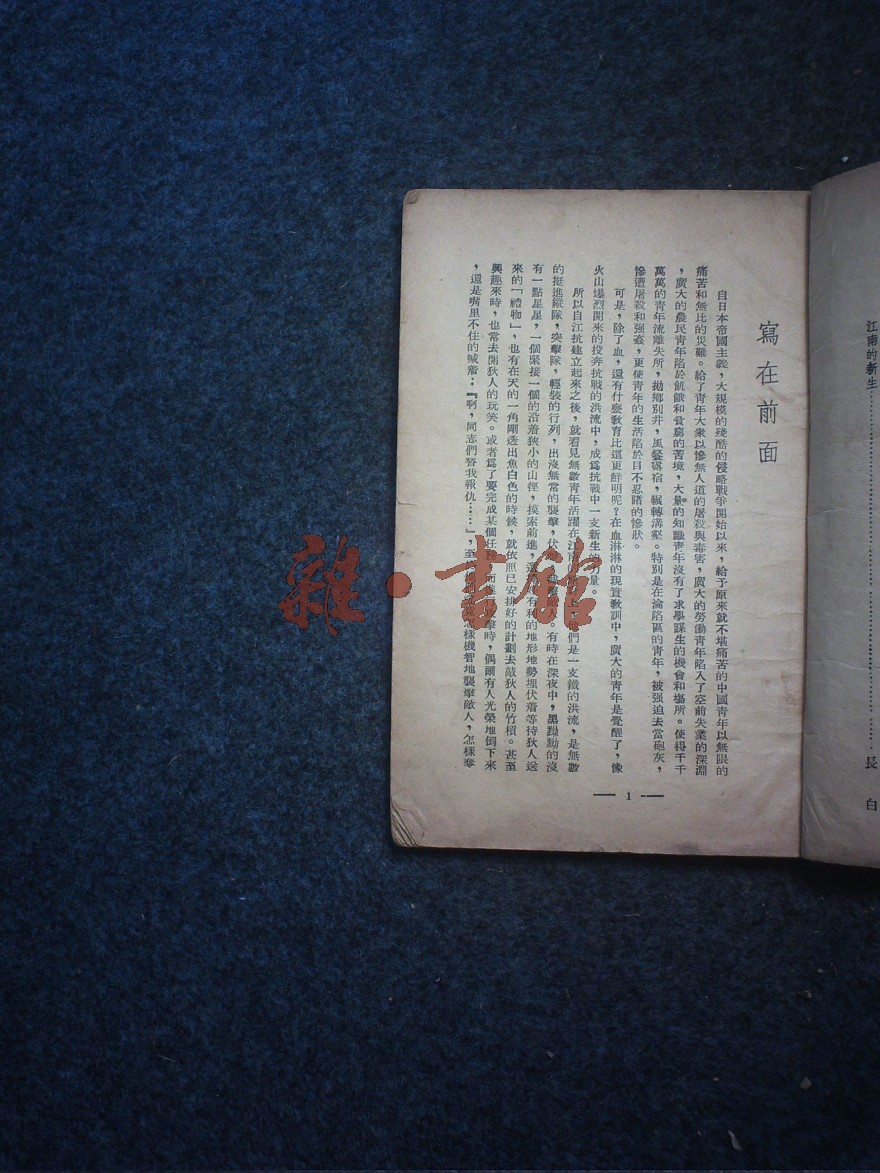 江南的新生…………………………………………長白
寫在前面
自日本帝國主義，大規模的殘酷的侵略戰爭開始以來，給予原來就不堪痛苦的中國青年以無限的
痛苦和無比的災難。給了青年大衆以慘無人道的屠殺與毒害，廣大的勞働青年陷入了空前失業的深淵
，廣大的農民青年陷於飢餓和貧窮的苦境，大量的知識青年沒有了求學謀生的機會和場所。使得千千
萬萬的青年流離失所，拋鄉別井，風餐露宿，輾轉溝壑。特別是在淪陷區的青年，被强迫去當砲灰，
慘遭屠殺和强姦，更使青年的生活陷於目不忍睹的慘狀。
可是，除了血，還有什麽敎育比這更鮮明呢？在血淋淋的現實敎訓中，廣大的青年是覺醒了，像
火山爆烈開來的投奔抗戰的洪流中，成爲抗戰中一支新生的力量。
所以自江抗建立起來之後，就看見無數青年活躍在江南的們是一支鐵的洪流，是無數
的挺進縱隊，突擊隊，輕裝的行列，出沒無常的襲擊，伏。有時在深夜中，黑黝黝的沒
有一點星星，一個緊接一個的沿着狹小的山徑，摸索前進，有利的地形地勢埋伏着等待狄人送
來的「禮物」，也有在天的一角剛透出魚白色的時候，就依照已安排好的計劃去敲狄人的竹槓。甚至
興趣來時，也常去開狄人的玩笑。或者爲了要完成某個任而擊時，偶爾有人光榮地倒下來
，還是嘴里不住的喊着：『啊，同志們替我報仇……』，至怎樣機智地襲擊敵人，怎樣奪
— 1 —
雜·書館